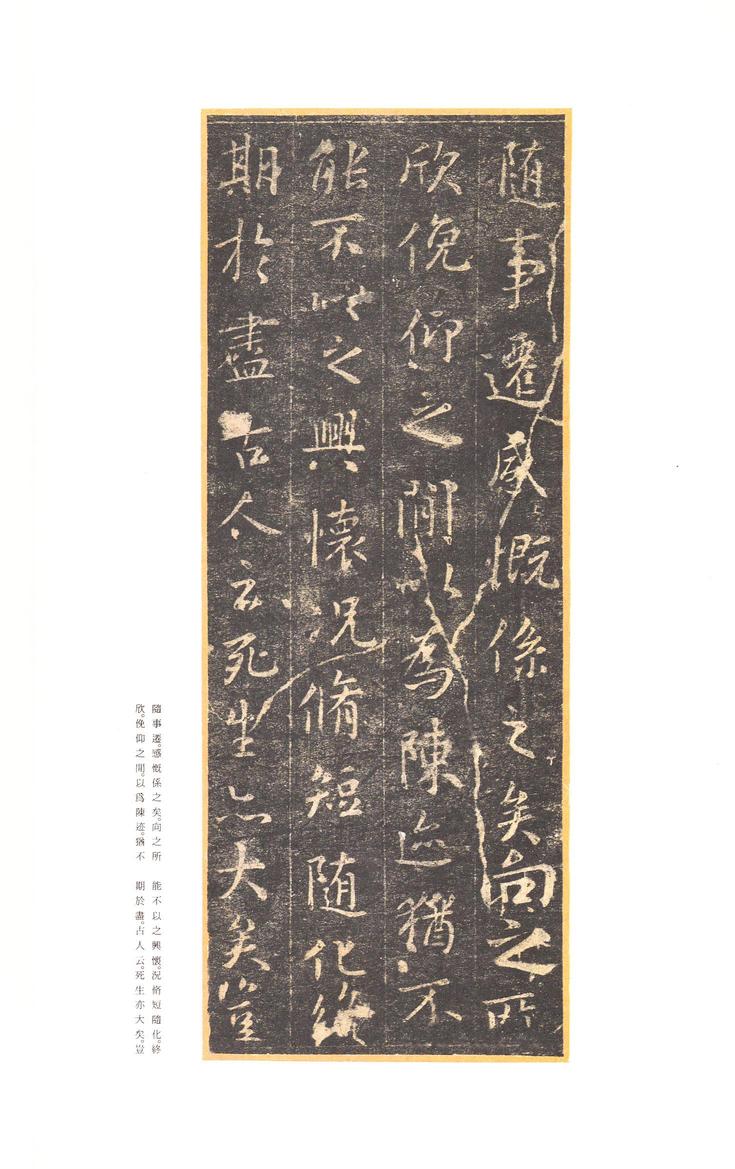 随事遷感慨係之矣向之所
欣俛仰之閒以為陳迹猶不
能不以之興懷況脩短随化終
期於盡古人云死生亦大矣豈
隨事遷。感慨係之矣。向之所
欣。俛仰之閒。以爲陳迹。猶不
能不以之興懷。況脩短隨化。終
期於盡。古人云。死生亦大矣。豈